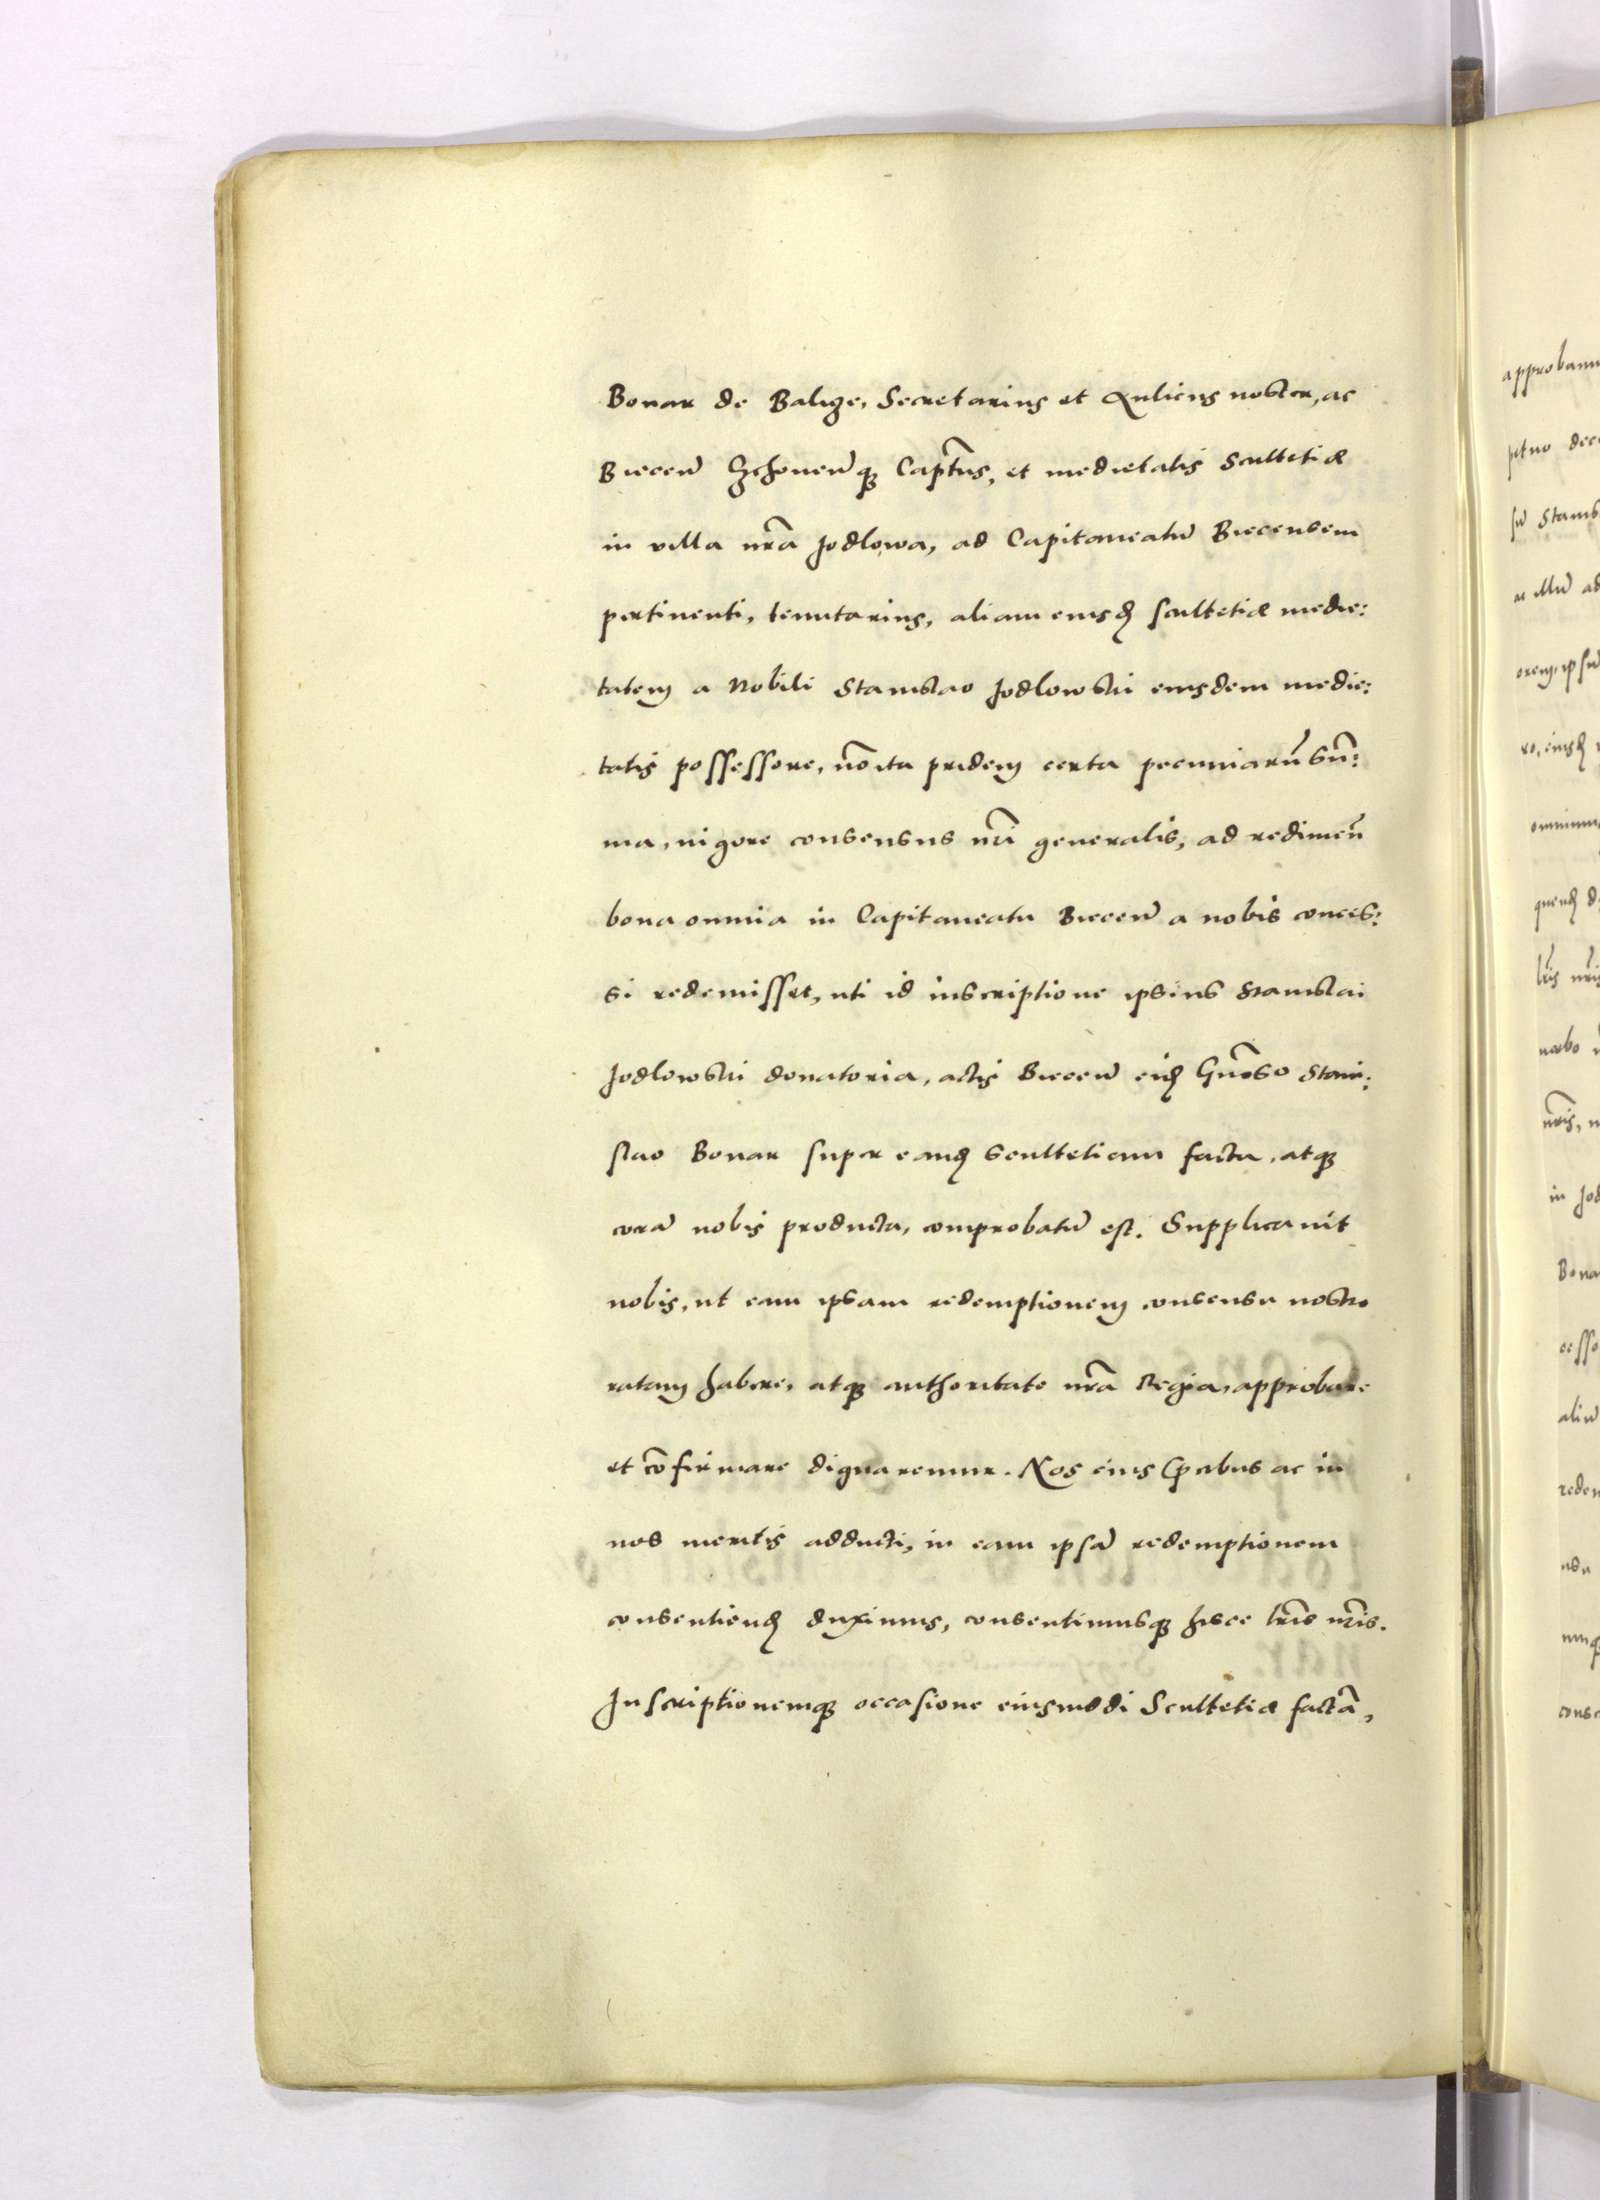 Bonar de Balicze, Secretarius et Aulicus noster, ac
Biecen̄ Zchovien̄q3 Capt̃us, et medietatis Scultetiæ
in villa nr̃a Jodlowa, ad Capitaneatū Biecensem
pertinenti, tenutarius, aliam eiusd scultetiæ medie:
tatem a Nobili Stanislao Jodlowski eiusdem medie:
tatis possessore, nõ ita pridem certa pecuniarũ sũ:
ma, vigore consensus nr̃i generalis, ad redimen̄
bona omnia in Capitaneatu Biecen̄ a nobis conces:
si redemisset, uti id inscriptione ipsius Stanislai
Jodlowski donatoria, actis Biecen̄ eid Gñoso Stani:
slao Bonar super eand scultetiam facta, atq3
corā nobis producta, comprobatū est. Supplicavit
nobis, ut eam ipsam redemptionem consensu nostro
ratam habere, atq3 authoritate nr̃a Regia, approbare
et cõfirmare dignaremur. Nos eius p̃cibus ac in
nos meritis adducti, in eam ipsā redemptionem
consentiend duximus, consentimusq3 hisce lr̃is nr̃is.
Inscriptionemq3 occasione eiusmodi Scultetiæ factã,
approbam
ptuo dec
sū Stanis
ac illū ad
orem, ipsū
ro, eiusd
omnium
quend d
lr̃is nr̃is
verbo
nr̃is,
in Jod
Bona
cesso
aliū
redem
nsu
cons